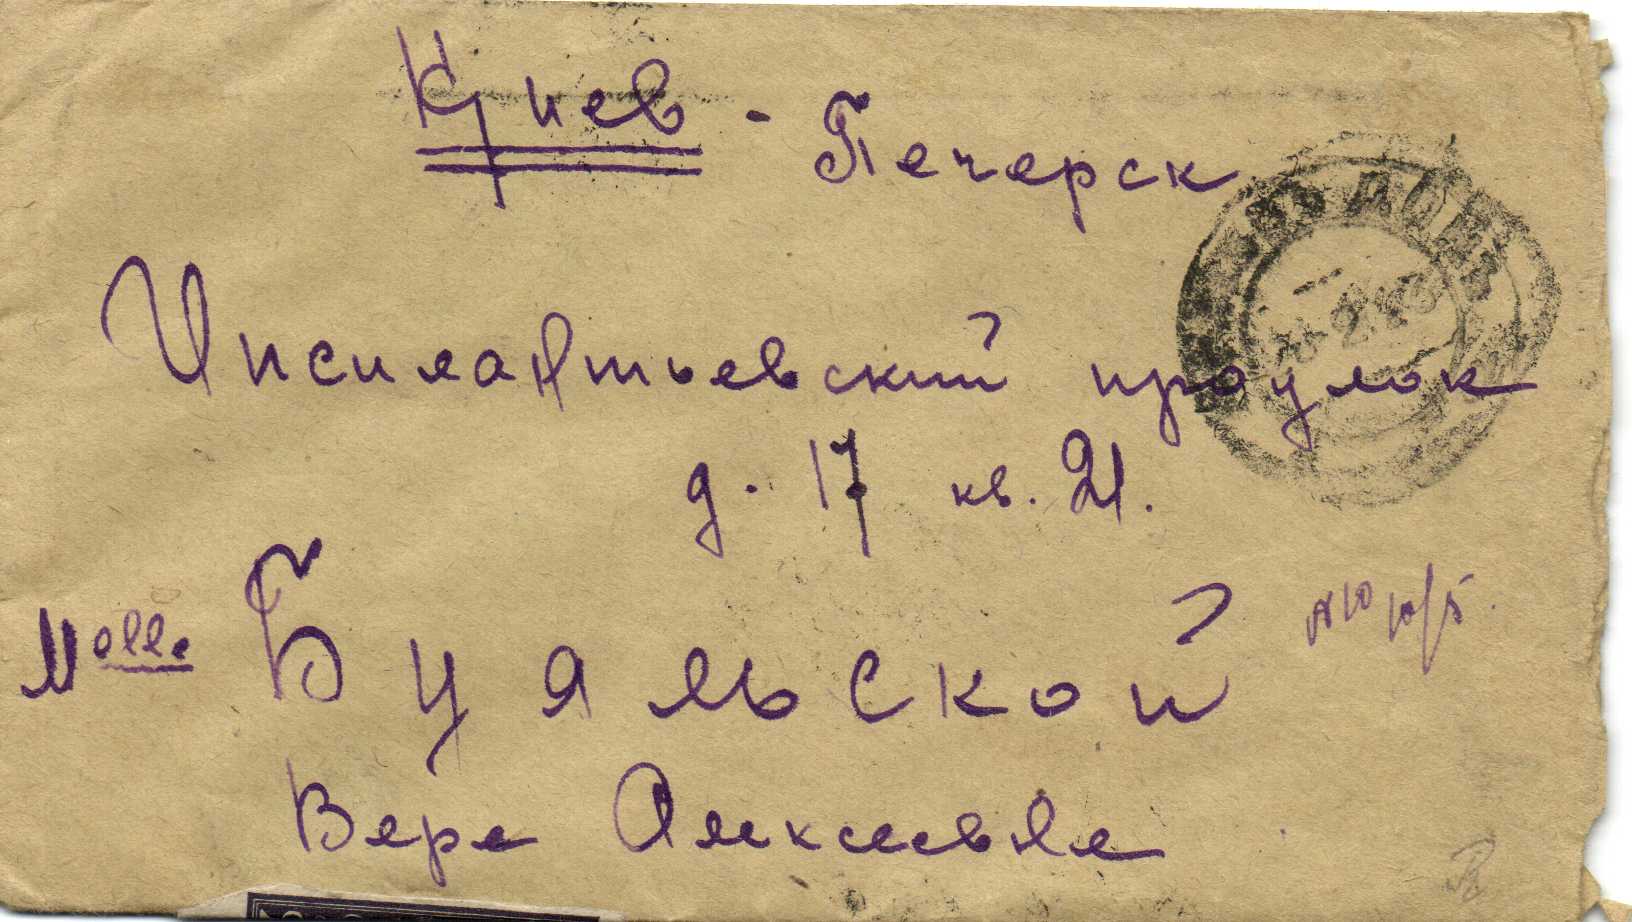 Киев - Печерск
Ипсилантьевский проулок
д. 17 кв. 21.
Melle Буяльской
Вере Алексеевне